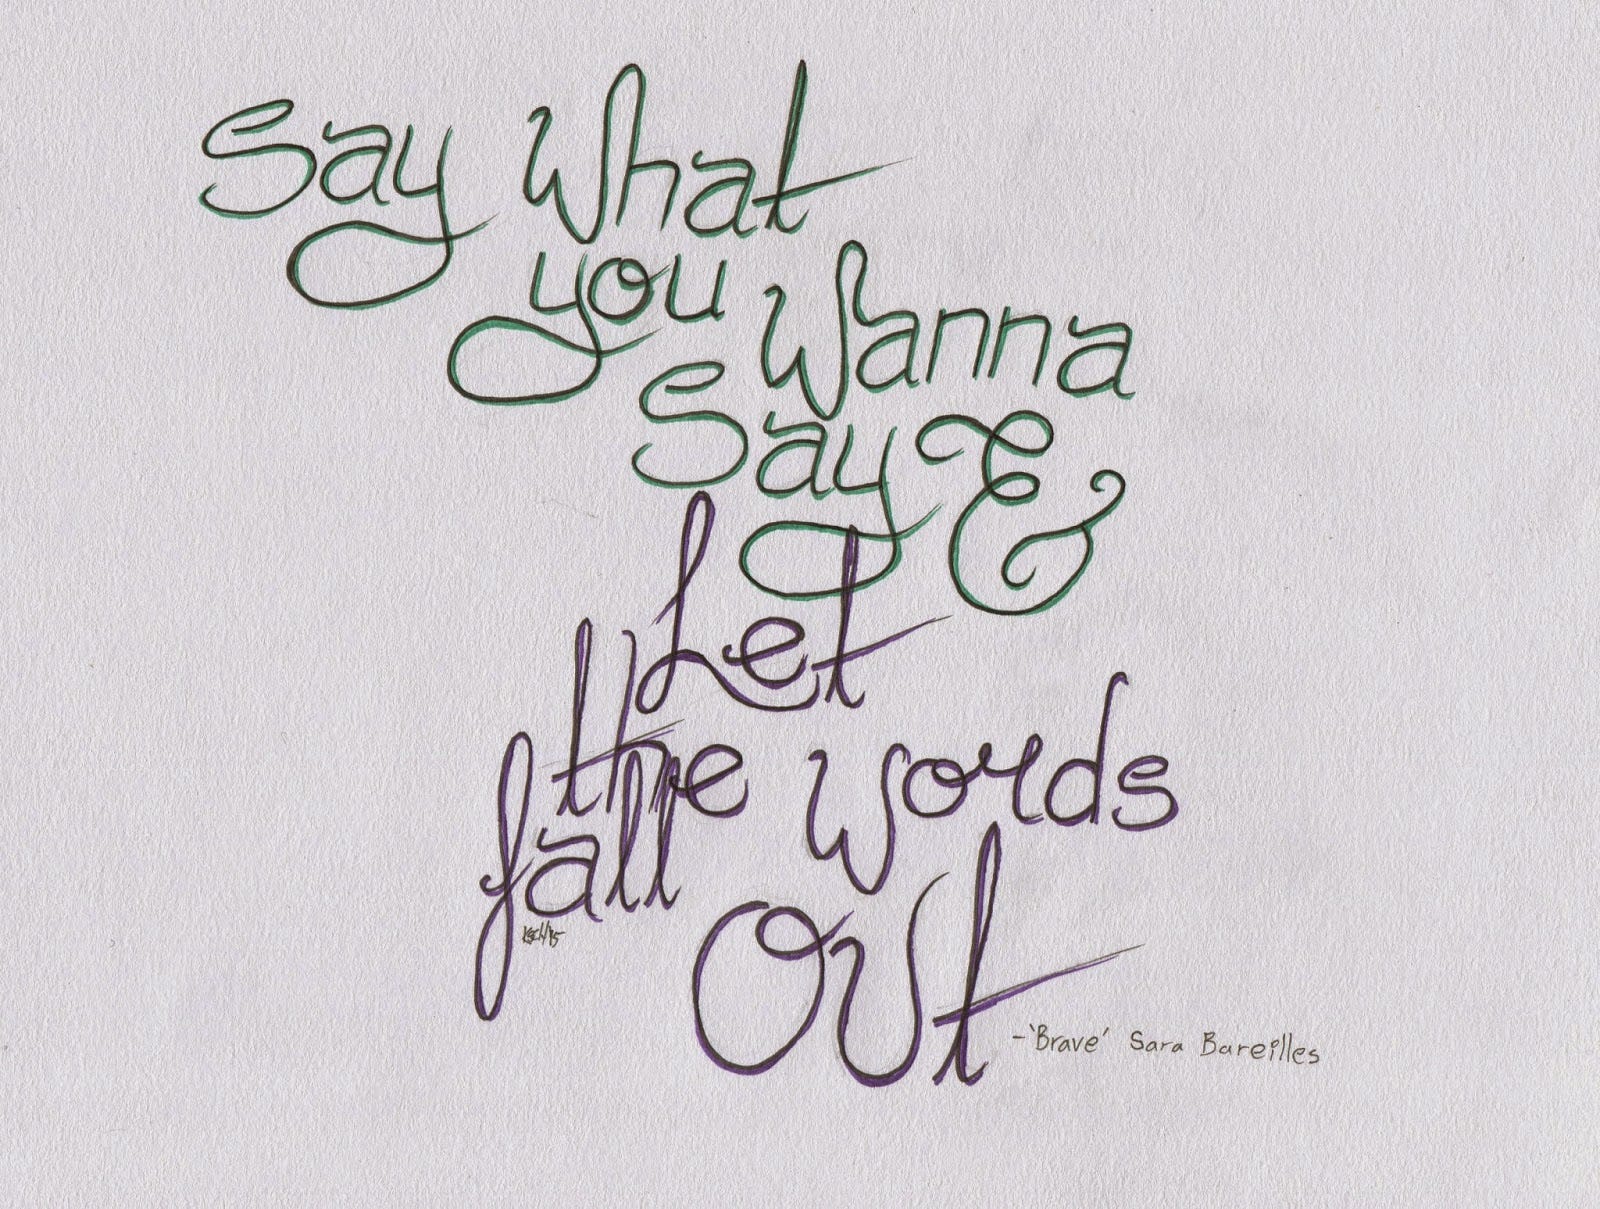 Say What
you Wanna
Say &
Let
the words
fall
Out
-'Brave' Sara Bareilles